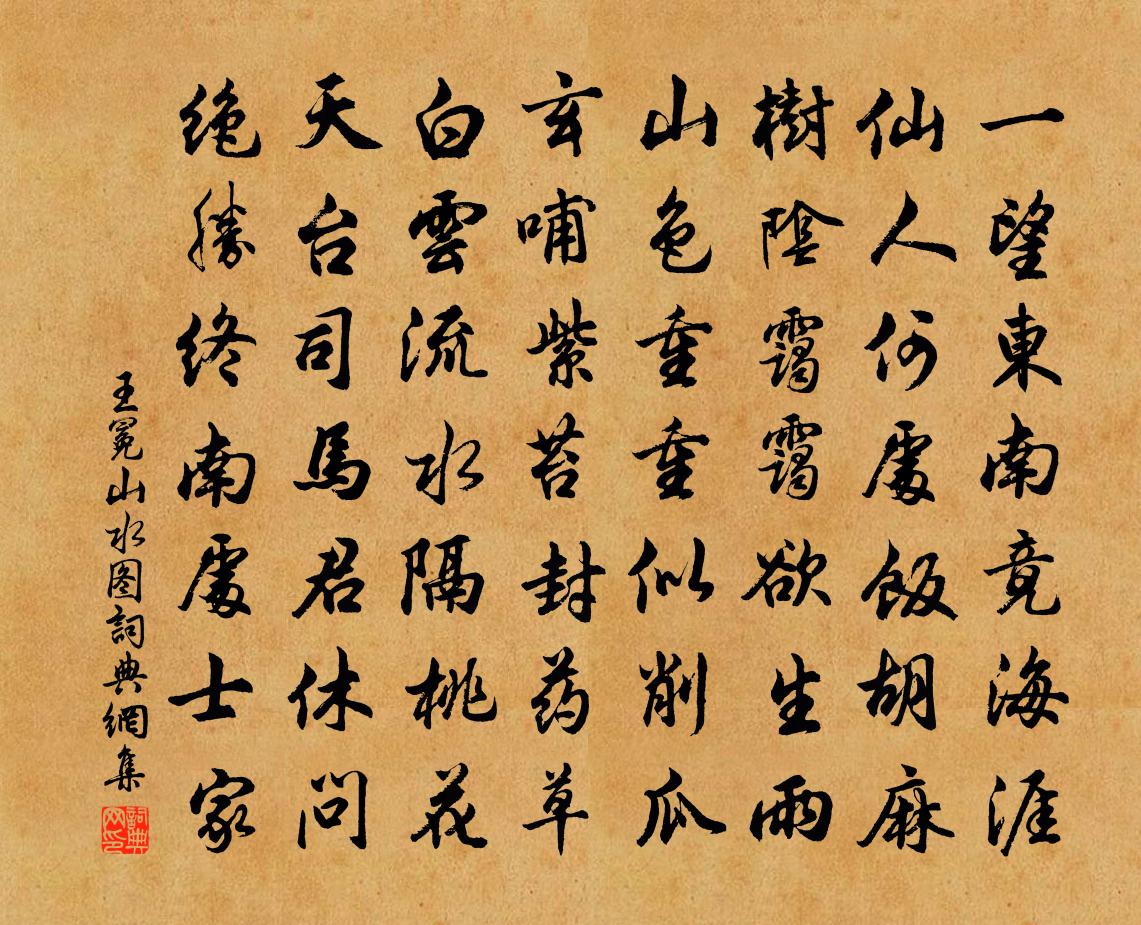 一望東南竟海涯
仙人何處飯胡麻
樹陰靄靄欲生雨
山色重重似削瓜
玄哺紫苔封药草
白雲流水隔桃花
天台司馬君休問
絶勝終南處士家
王冕山水图詞典網集
詞典网印